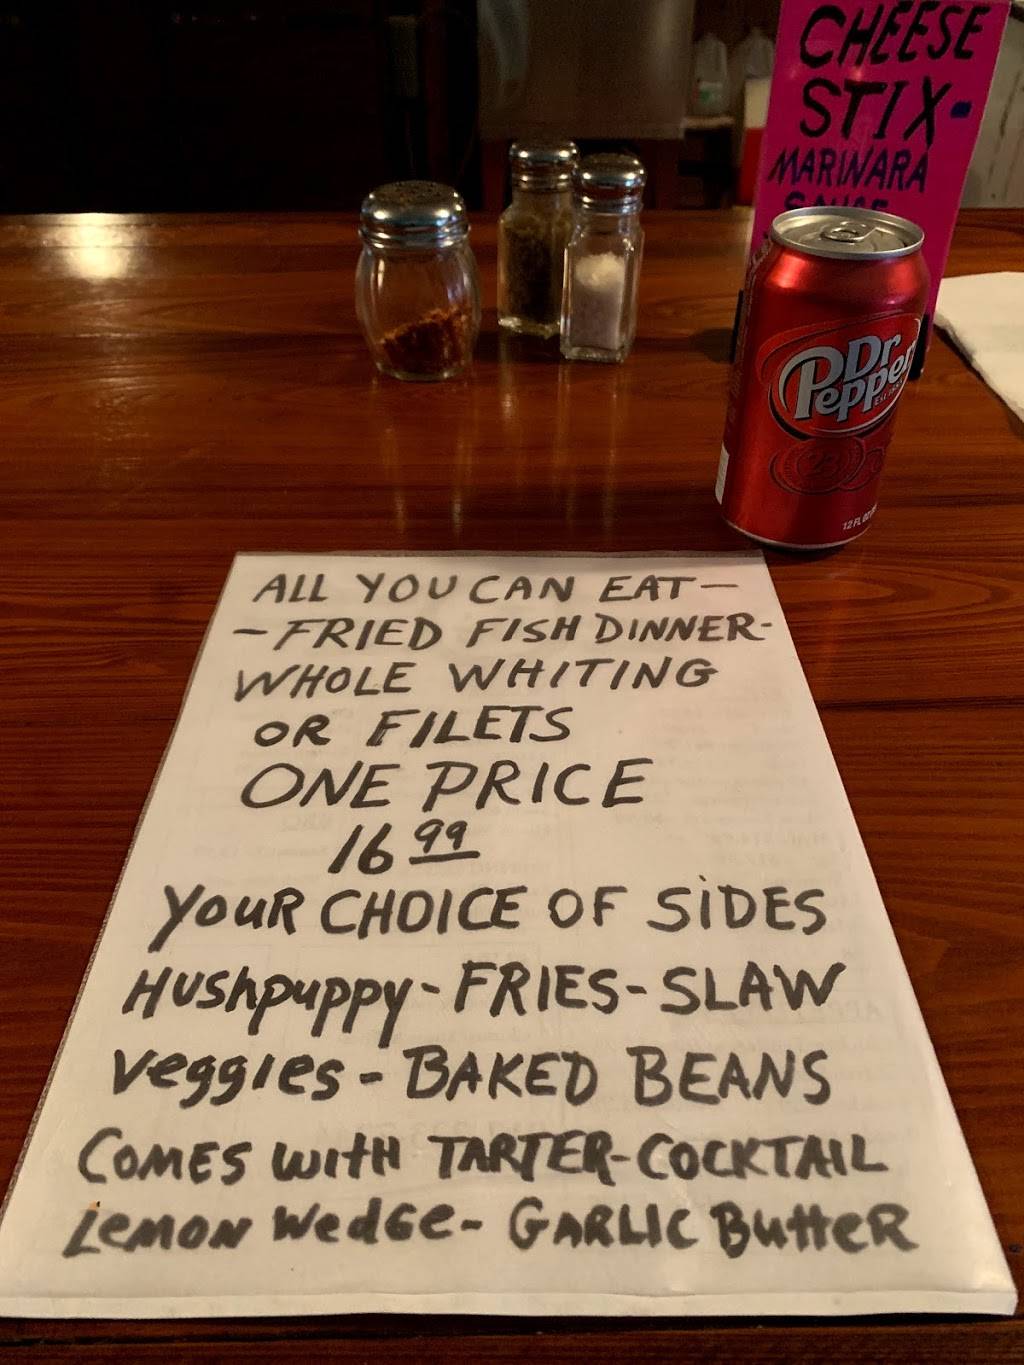 CHEESE
STIX-
MARINARA
SAUCE
Dr
Pepper
23
12 FL OZ
ALL YOU CAN EAT-
-FRIED FISH DINNER-
WHOLE WHITING
OR FILETS
ONE PRICE
16 99
YOUR CHOICE OF SIDES
HUSHpuppy-FRIES-SLAW
Veggies-BAKED BEANS
COMES WITH TARTER-COCKTAIL
LEMON WEDGE-GARLIC BUTTER